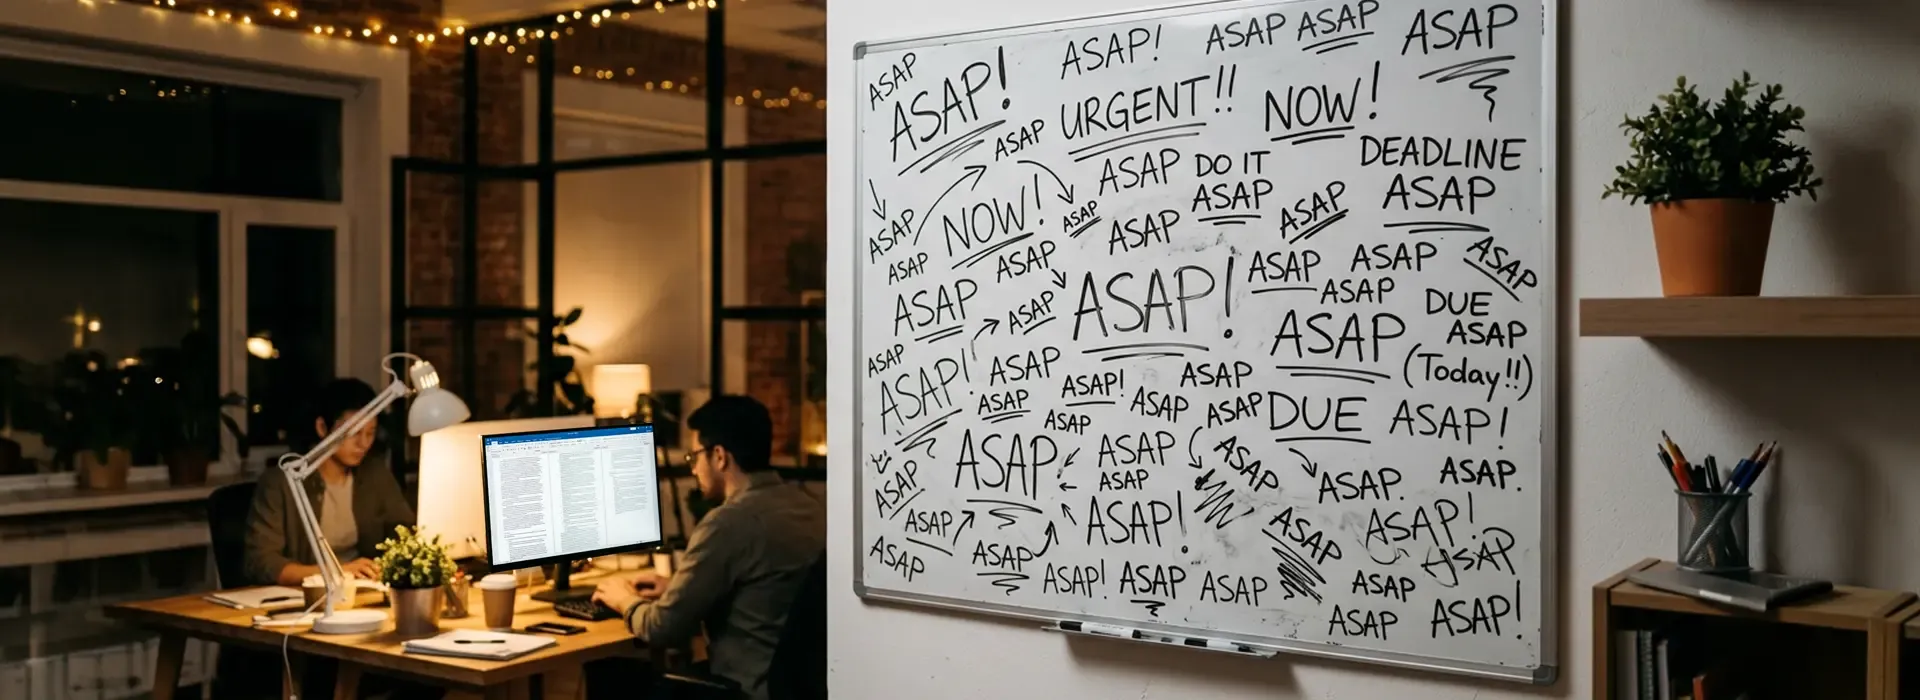 ASAP
ASAP!
ASAP!
ASAP ASAP
ASAP
URGENT!!
NOW!
ASAP
ASAP
DO IT
ASAP
DEADLINE
ASAP
ASAP
NOW!
ASAP
ASAP
ASAP
ASAP
ASAP
ASAP
ASAP
ASAP
ASAP
ASAP
ASAP
ASAP!
ASAP
DUE
ASAP
(Today!!)
ASAP
ASAP
ASAP!
ASAP
ASAP
ASAP!
ASAP
ASAP
ASAP
ASAP
DUE
ASAP!
ASAP
ASAP
ASAP
ASAP
ASAP
ASAP.
ASAP.
ASAP
ASAP
ASAP
ASAP!
ASAP
ASAP!
ASAP
ASAP
ASAP!
ASAP
ASAP
ASAP
ASAP
ASAP!